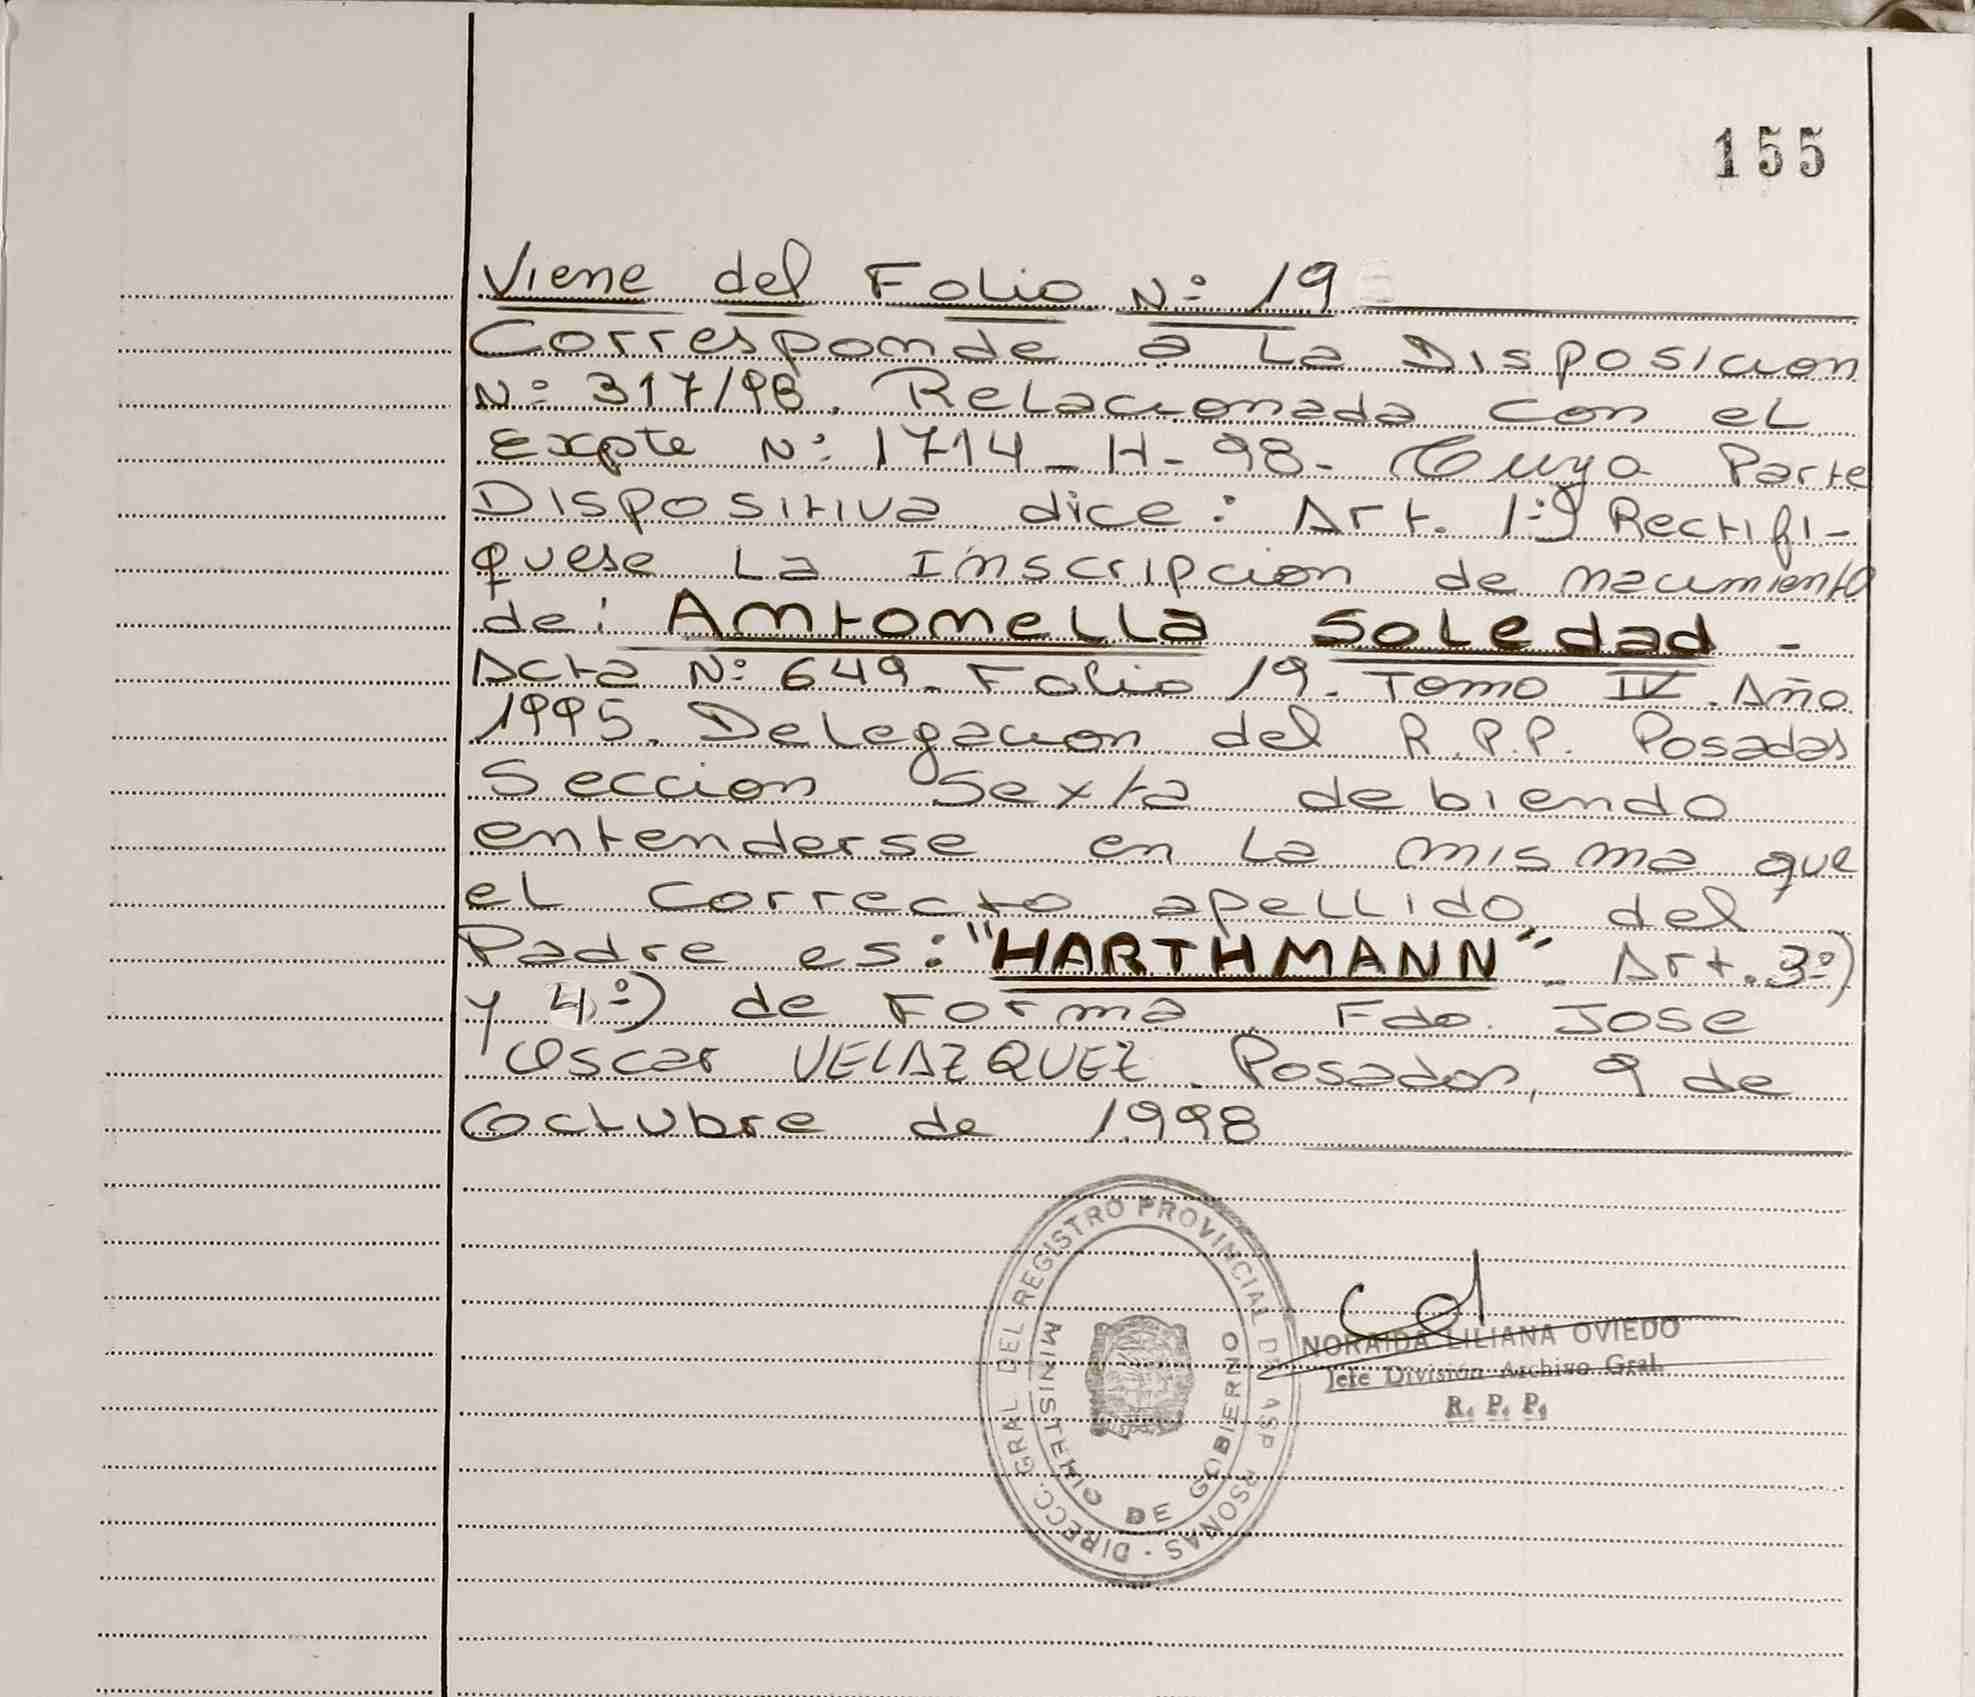 155
Viene del Folio Nº 19
Corresponde a La Disposicion
Nº 317/98. Relacionada con el
Expte Nº 1714-H-98- Cuya Parte
Dispositiva dice: Art. 1º) Rectifi-
quese La Inscripcion de nacimiento
de: Antonella Soledad -
Acta Nº 649. Folio 19. Tomo IV. Año
1995. Delegacion del R.P.P. Posadas
Seccion Sexta debiendo
entenderse en la misma que
el correcto apellido del
Padre es: "HARTHMANN" Art. 3º)
y 4º) de Forma. Fdo. Jose
Oscar VELAZQUEZ. Posadas, 9 de
Octubre de 1998
DIRECC. GRAL DEL REGISTRO PROVINCIAL DE LAS PERSONAS -
MINISTERIO DE GOBIERNO
NORAIDA LILIANA OVIEDO
Jefe División Archivo Gral.
R. P. P.